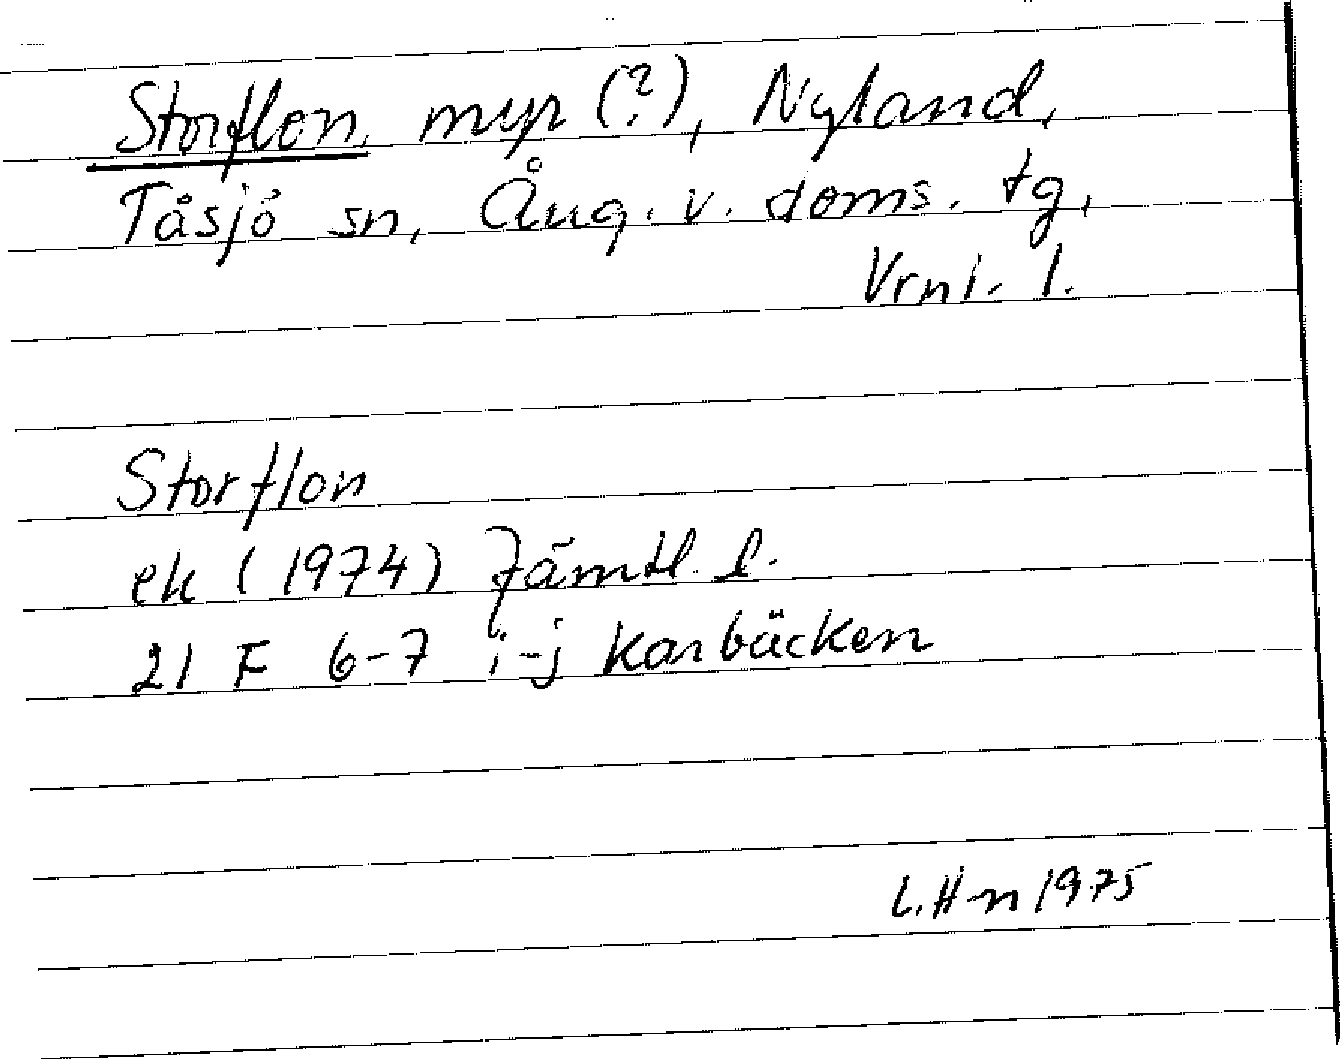 Storflon, myr (?), Nyland,
Tåsjö sn, Ång. v. doms. tg,
Vrnl. l.
Storflon
ek (1974) Jämtl. l.
21 F 6-7 i-j Karbäcken
L.H-n 1975